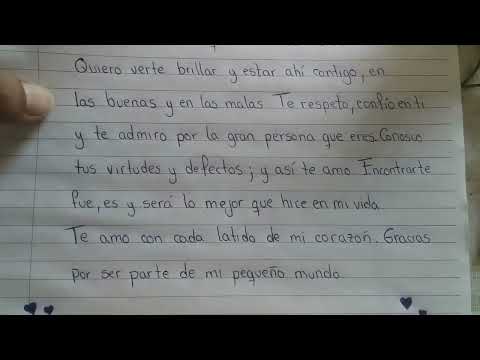 Quiero verte brillar y estar ahí contigo, en
las buenas y en las malas Te respeto, confío en ti
y te admiro por la gran persona que eres. Conosco
tus virtudes y defectos; y así te amo Encontrarte
fue, es y será lo mejor que hice en mi vida
Te amo con cada latido de mi corazón. Gracias
por ser parte de mi pequeño mundo